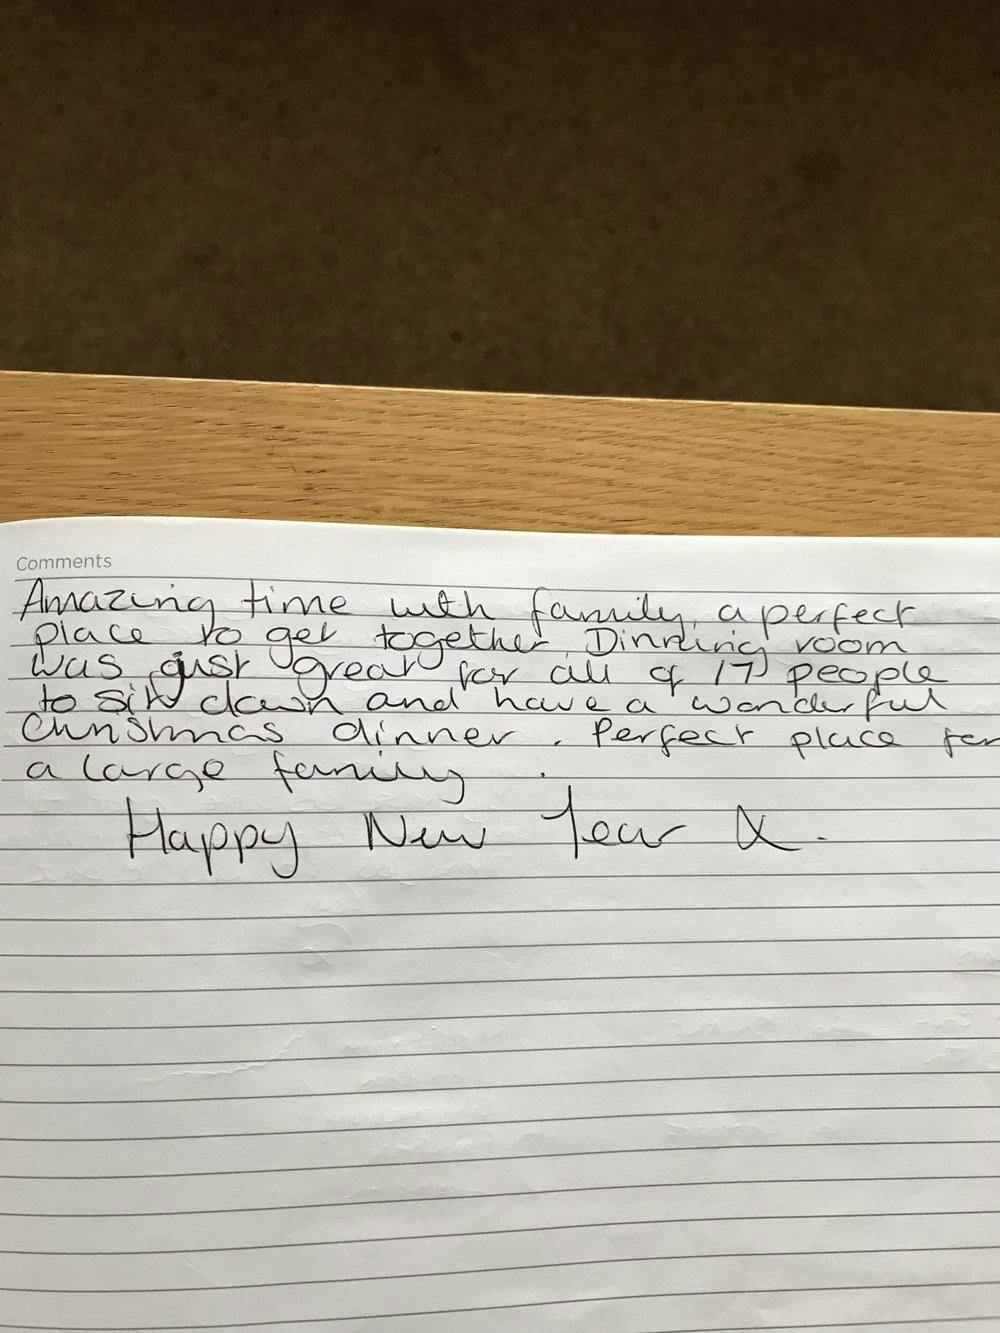 Comments
Amazing time with family, a perfect
place to get together. Dinning room
was just great for all of 17 people
to sit down and have a wonderful
Christmas dinner. Perfect place for
a large family.
Happy New Year X.